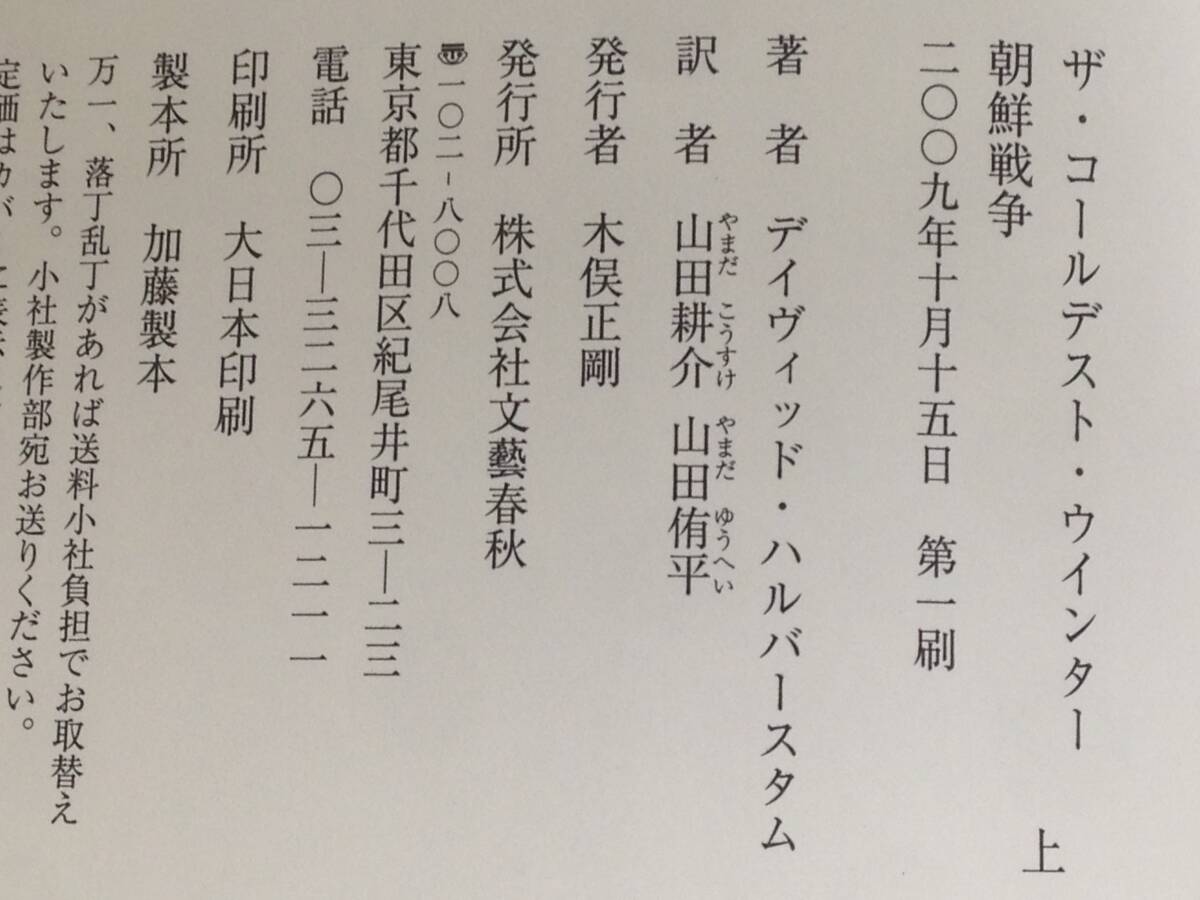 ザ・コールデスト・ウインター
朝鮮戦争 上
二〇〇九年十月十五日 第一刷
著 者 デイヴィッド・ハルバースタム
訳 者 山田耕介 山田侑平
やまだ こうすけ やまだ ゆうへい
発行者 木俣正剛
発行所 株式会社文藝春秋
〠一〇二-八〇〇八
東京都千代田区紀尾井町三―二三
電話 〇三―三二六五―一二一一
印刷所 大日本印刷
製本所 加藤製本
万一、落丁乱丁があれば送料小社負担でお取替え
いたします。小社製作部宛お送りください。
定価はカバー